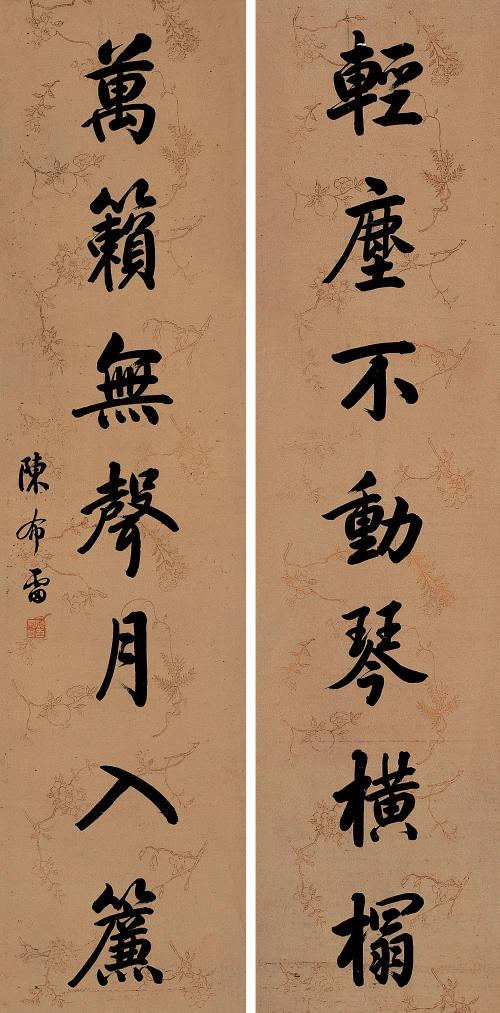 輕塵不動琴橫榻
萬籟無聲月入簾
陳布雷